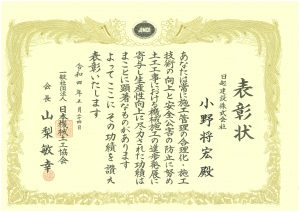 JCMCA
表彰状
日起建設株式会社
小野将宏 殿
あなたは常に施工管理の合理化・施工
技術の向上と安全公害の防止に努め
土工工事における機械施工の進歩発展に
寄与し生産性向上に尽力された功績は
まことに顕著なものがあります
よってここにその功績を讃え
表彰いたします
令和四年五月二十四日
一般社団法人 日本機械土工協会
会長 山梨敏幸